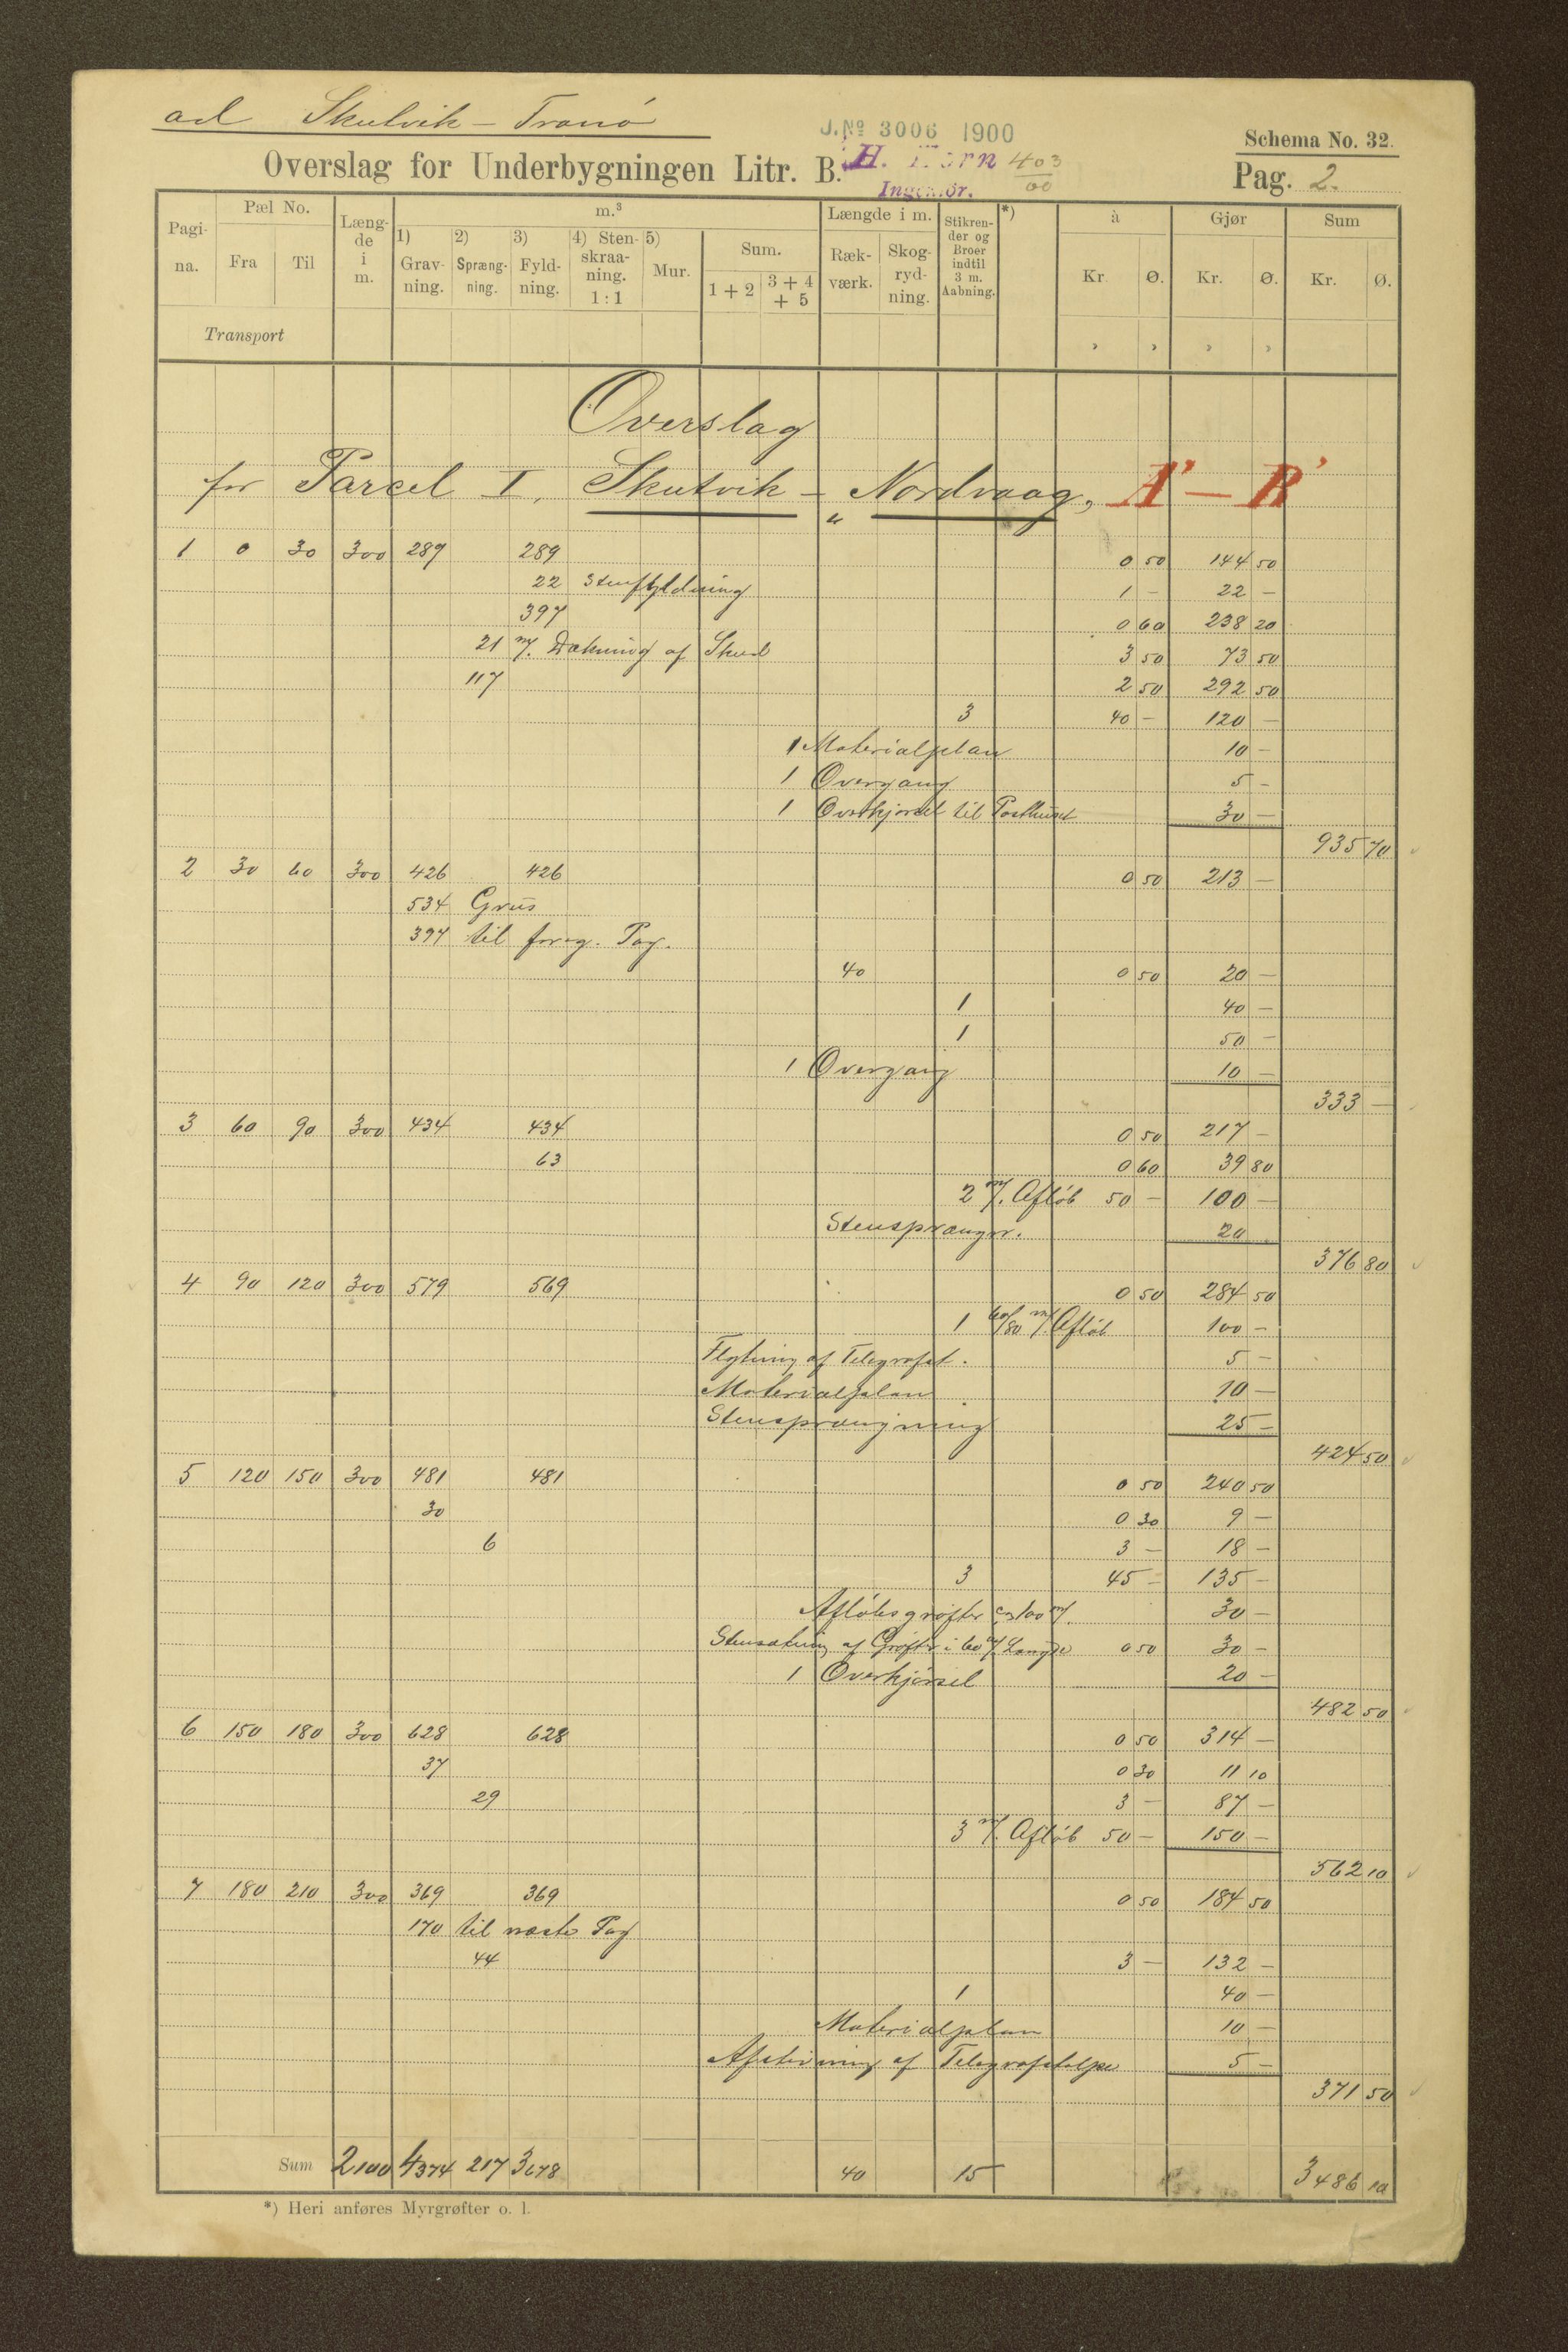 ad Skutvik - Tranö
J.No 3006 1900
Schema No. 32.
Overslag for Underbygningen Litr. B.
H. Horn 403/00
Ingeniör.
Pag. 2.
Pagina. Pæl No. Længde i m. m.³ Længde i m. Stikrender og Broer indtil 3 m. Aabning. *) à Gjør Sum
Fra Til 1) Gravning. 2) Sprængning. 3) Fyldning. 4) Stenskraaning. 1:1 5) Mur. Sum. 1+2 3+4+5 Rækværk. Skogrydning. Kr. Ø. Kr. Ø. Kr. Ø.
Transport , , , ,
Overslag
for Parcel I, Skutvik - Nordvaag, A' - R'
1 0 30 300 289 289 0 50 144 50
22 Stenfyldning 1 - 22 -
397 0 60 238 20
21 m/. Dækning af Skud 3 50 73 50
117 2 50 292 50
3 40 - 120 -
1 Materialplan 10 -
1 Overgang 5 -
1 Overkjørsel til Posthuset 30 -
935 70
2 30 60 300 426 426 0 50 213 -
534 Grus
397 til foreg. Pag.
40 0 50 20 -
1 40 -
1 50 -
1 Overgang 10 -
333 -
3 60 90 300 434 434 0 50 217 -
63 0 60 39 80
2 m/. Afløb 50 - 100 -
Stensprængn. 20
376 80
4 90 120 300 579 569 0 50 284 50
1 60/80 m/. Afløb 100 -
Flytning af Telegrafst. 5 -
Materialplan 10 -
Stensprængning 25 -
424 50
5 120 150 300 481 481 0 50 240 50
30 0 30 9 -
6 3 - 18 -
3 45 - 135 -
Afløbsgrøfter ca 100 m/. 30 -
Stensætning af Grøfter i 60 m/. Længde 0 50 30 -
1 Overkjørsel 20 -
482 50
6 150 180 300 628 628 0 50 314 -
37 0 30 11 10
29 3 - 87 -
3 m/. Afløb 50 - 150 -
562 10
7 180 210 300 369 369 0 50 184 50
170 til næste Pag
44 3 - 132 -
1 40 -
Materialplan 10 -
Afstivning af Telegrafstolpe 5 -
371 50
Sum 2100 4374 217 3678 40 15 3486 10
*) Heri anføres Myrgrøfter o. l.